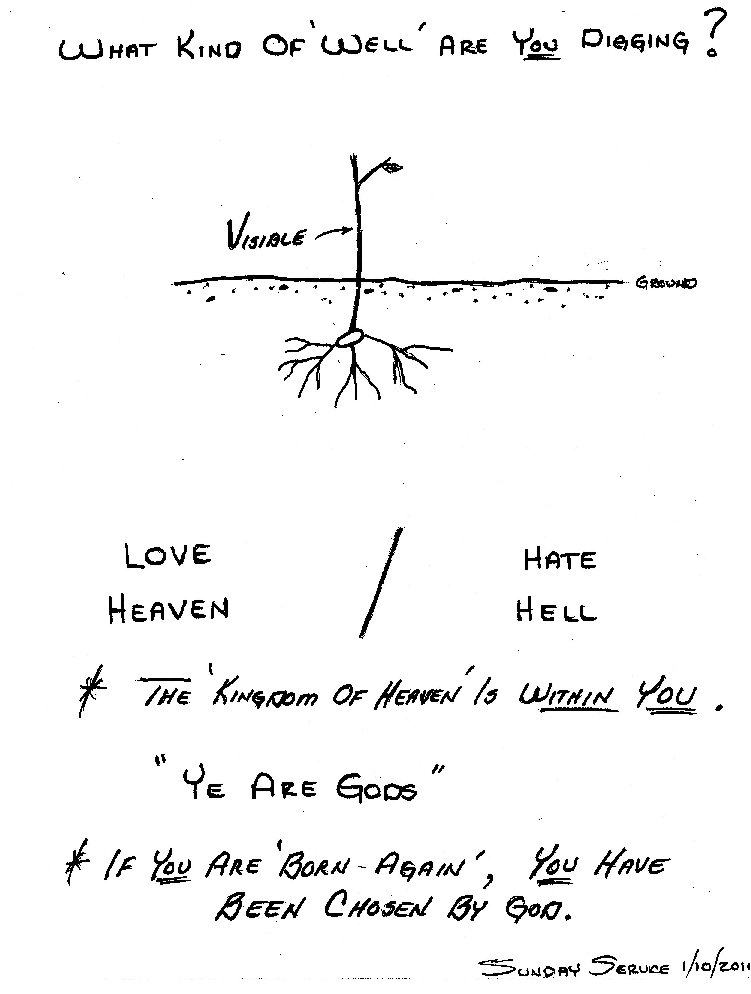 WHAT KIND OF 'WELL' ARE YOU DIGGING?
VISIBLE
GROUND
LOVE / HATE
HEAVEN HELL
* THE 'KINGDOM OF HEAVEN' IS WITHIN YOU.
"YE ARE GODS"
* IF YOU ARE 'BORN-AGAIN', YOU HAVE
BEEN CHOSEN BY GOD.
SUNDAY SERVICE 1/10/201